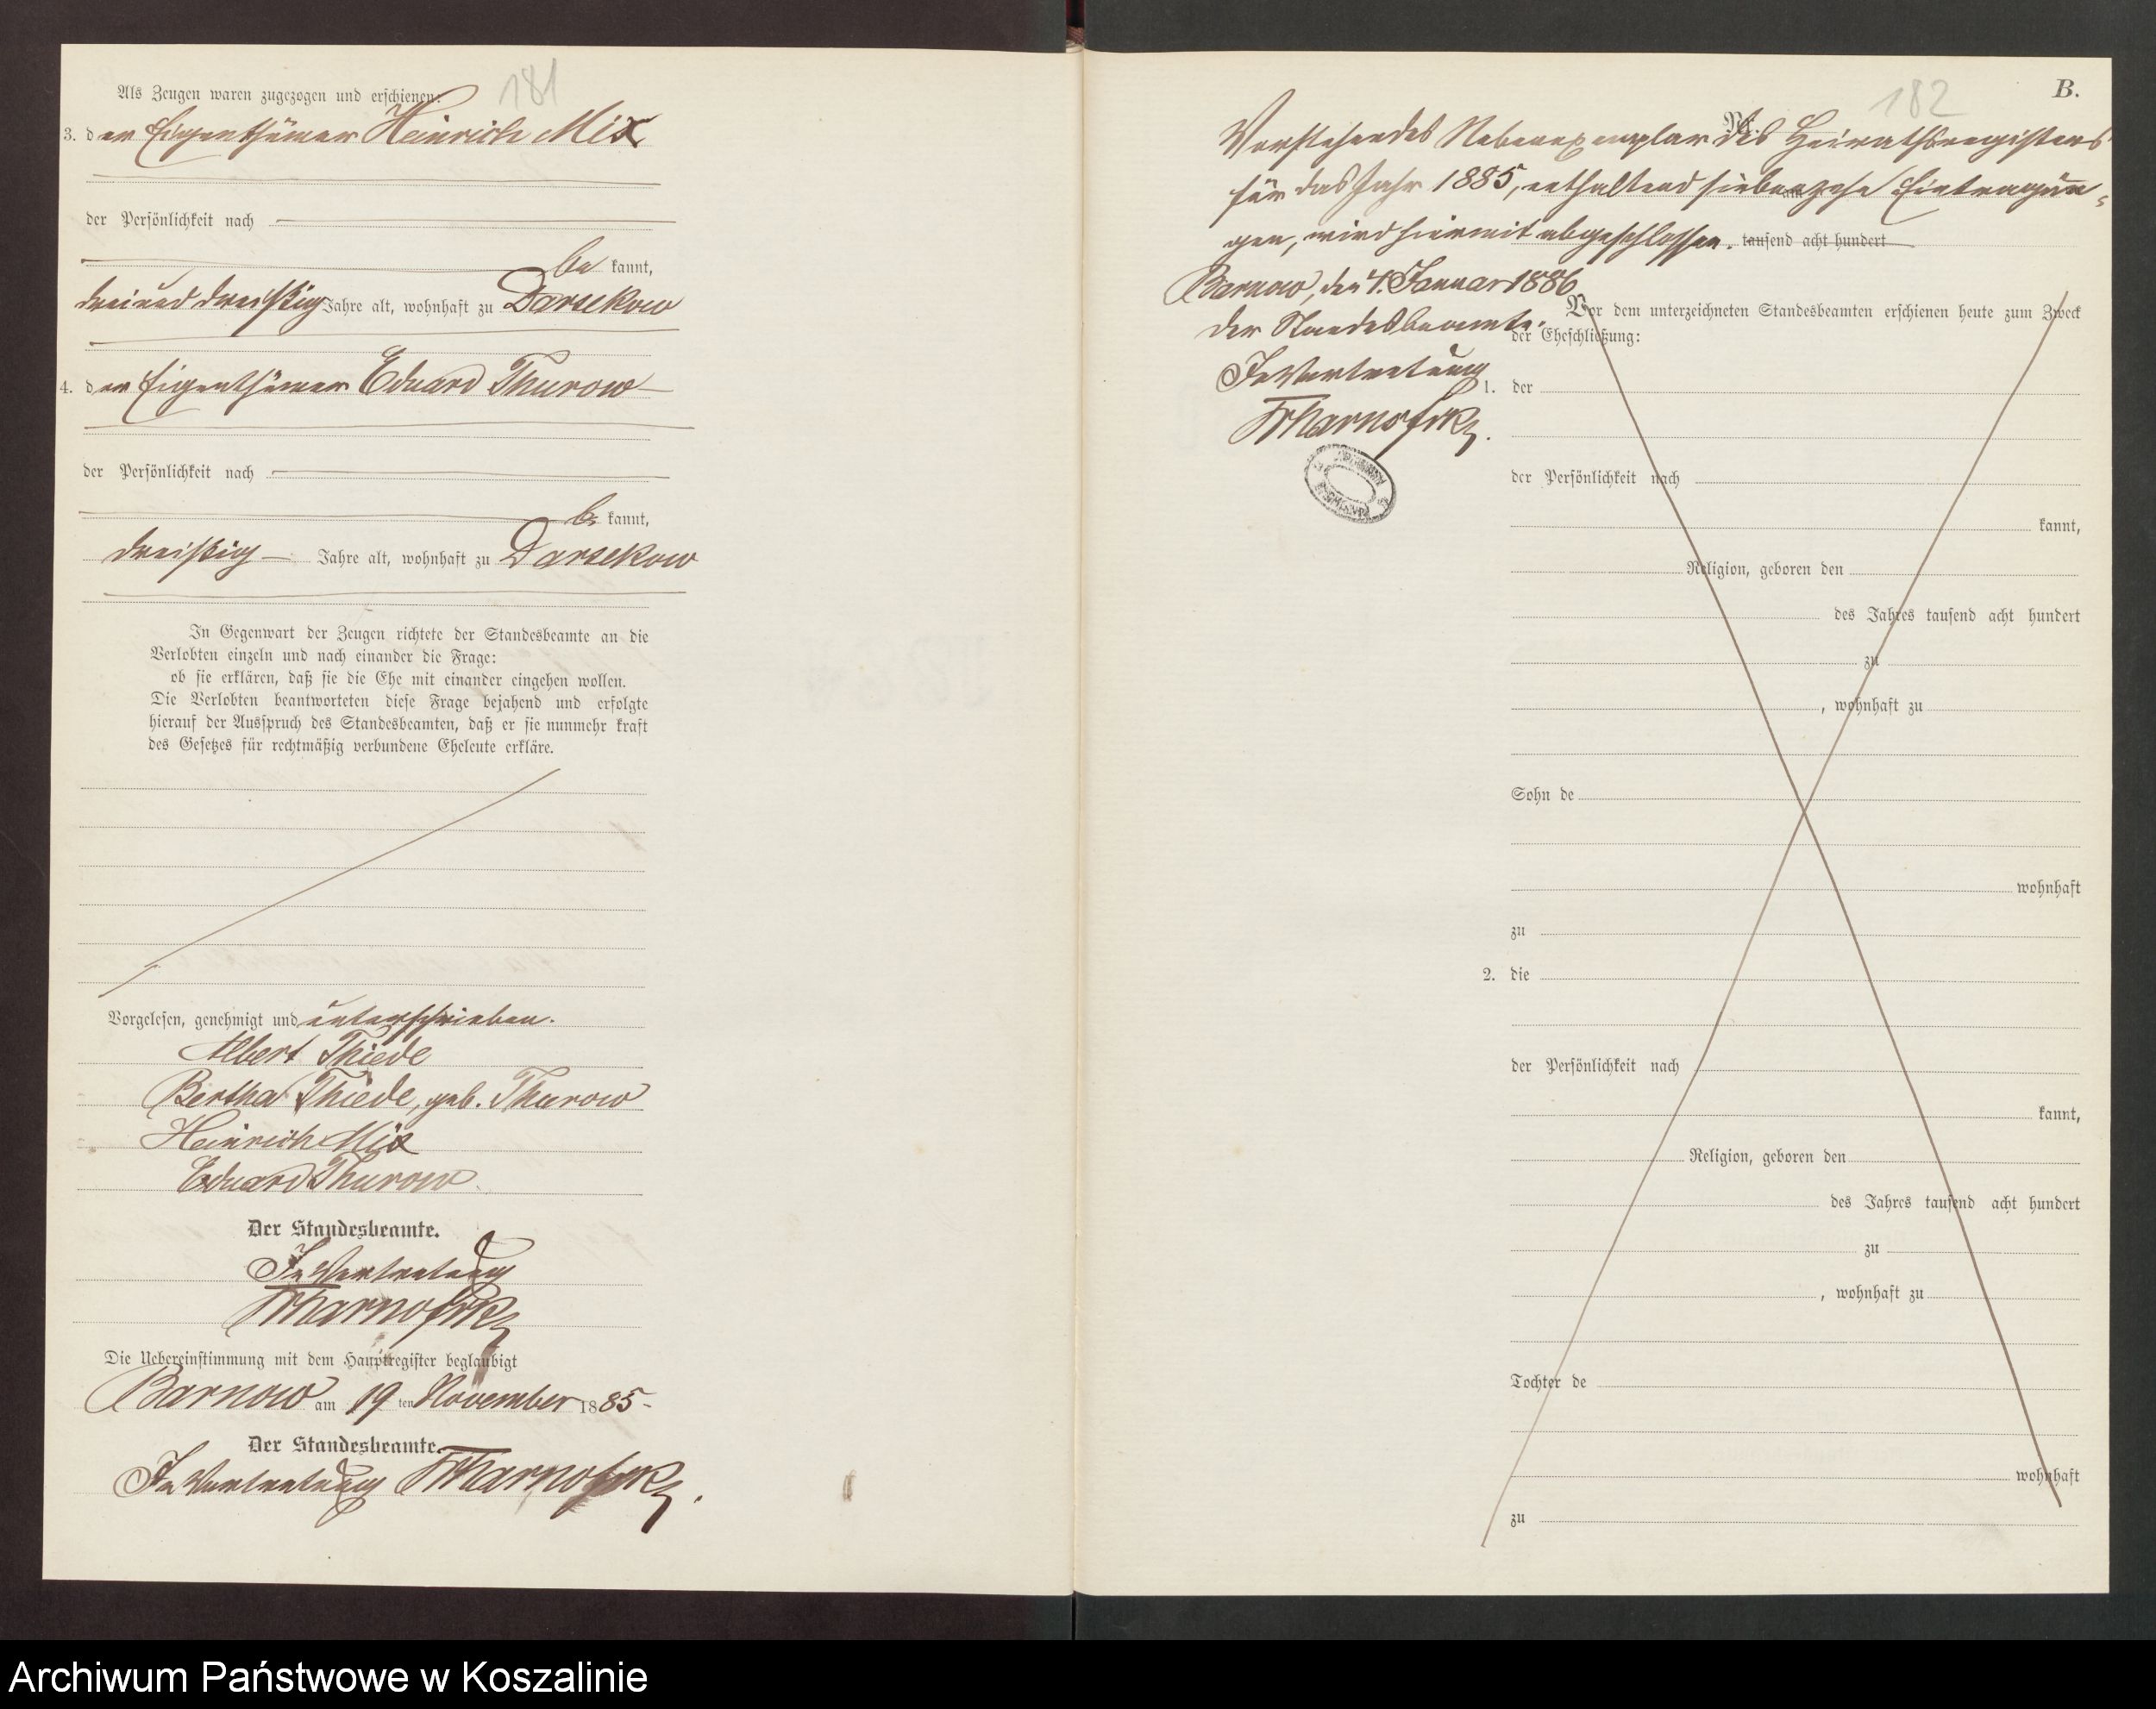 181
Als Zeugen waren zugezogen und erschienen:
3. der Eigenthümer Heinrich Mix
der Persönlichkeit nach
be kannt,
dreiund dreißig Jahre alt, wohnhaft zu Darsekow
4. der Eigenthümer Eduard Thurow
der Persönlichkeit nach
be kannt,
dreißig Jahre alt, wohnhaft zu Darsekow
In Gegenwart der Zeugen richtete der Standesbeamte an die
Verlobten einzeln und nach einander die Frage:
ob sie erklären, daß sie die Ehe mit einander eingehen wollen.
Die Verlobten beantworteten diese Frage bejahend und erfolgte
hierauf der Ausspruch des Standesbeamten, daß er sie nunmehr kraft
des Gesetzes für rechtmäßig verbundene Eheleute erkläre.
Vorgelesen, genehmigt und unterschrieben.
Albert Thiede
Bertha Thiede, geb. Thurow
Heinrich Mix
Eduard Thurow.
Der Standesbeamte.
In Vertretung
Die Uebereinstimmung mit dem Hauptregister beglaubigt
Barnow am 19 ten November 1885
Der Standesbeamte.
In Vertretung
182
B.
Vorstehendes Nebenexemplar des Heirathsregisters
für das Jahr 1885, enthaltend siebenzehn Eintragun-
gen, wird hiermit abgeschlossen. tausend acht hundert
Barnow, den 4. Januar 1886
Der Standesbeamte.
In Vertretung
Vor dem unterzeichneten Standesbeamten erschienen heute zum Zweck
der Eheschließung:
1. der
der Persönlichkeit nach
kannt,
Religion, geboren den
des Jahres tausend acht hundert
zu
, wohnhaft zu
Sohn de
wohnhaft
zu
2. die
der Persönlichkeit nach
kannt,
Religion, geboren den
des Jahres tausend acht hundert
zu
, wohnhaft zu
Tochter de
wohnhaft
zu
Archiwum Państwowe w Koszalinie